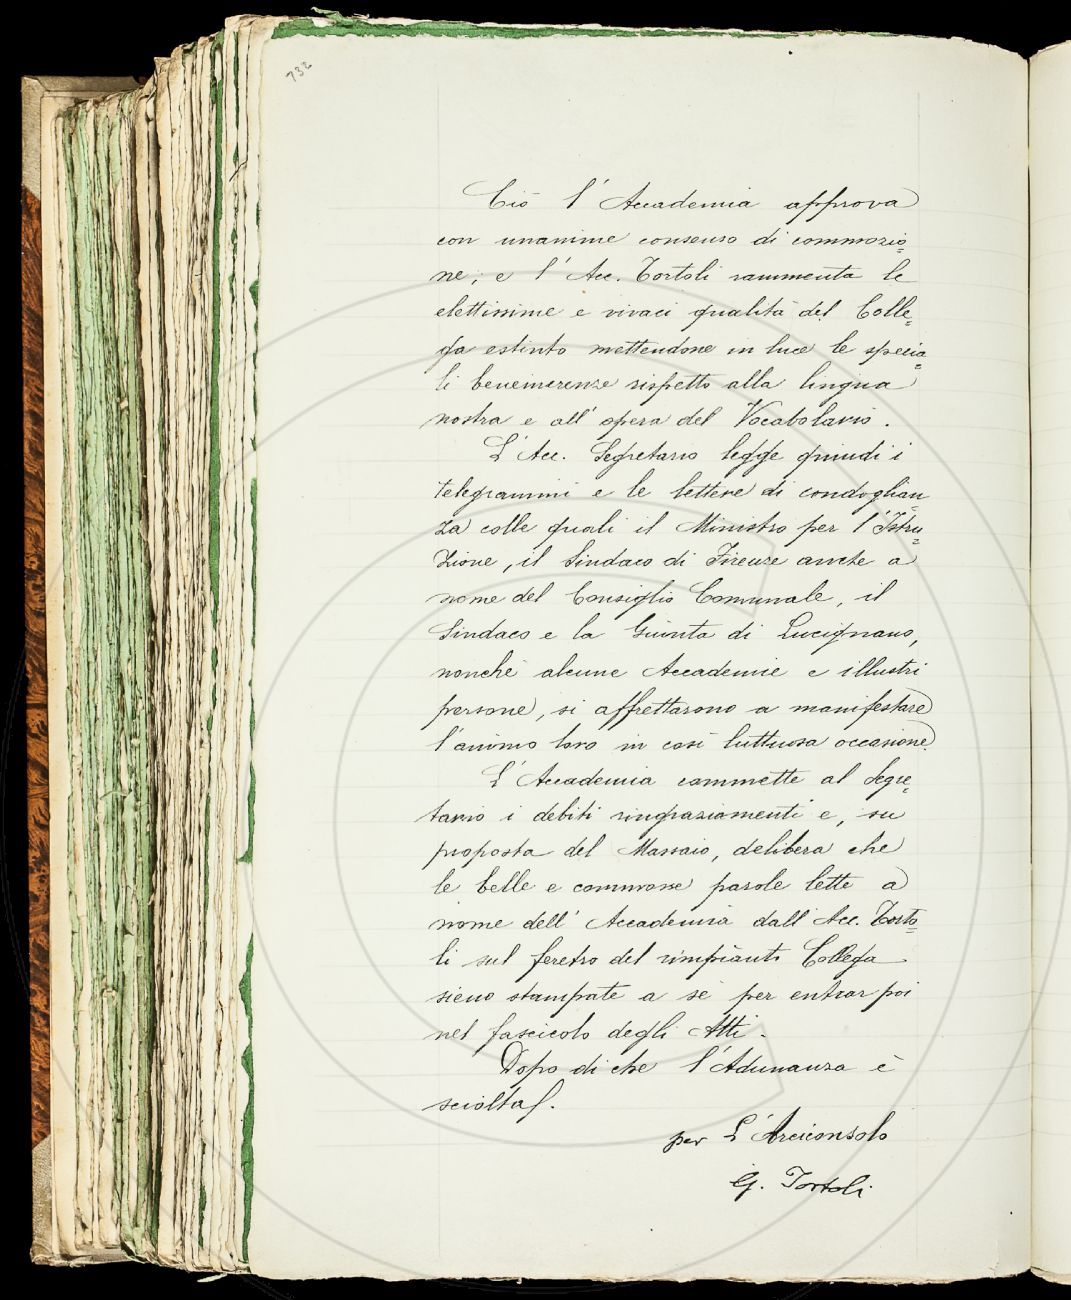 732
Ciò l'Accademia approva
con unanime consenso di commozio=
ne; e l'Acc. Tortoli rammenta le
elettissime e vivaci qualità del Colle=
ga estinto mettendone in luce le specia=
li benemerenze rispetto alla lingua
nostra e all'opera del Vocabolario.
L'Acc. Segretario legge quindi i
telegrammi e le lettere di condoglian=
za colle quali il Ministro per l'Istru=
zione, il Sindaco di Firenze anche a
nome del Consiglio Comunale, il
Sindaco e la Giunta di Lucignano,
nonchè alcune Accademie e illustri
persone, si affrettarono a manifestare
l'animo loro in così luttuosa occasione.
L'Accademia commette al Segre=
tario i debiti ringraziamenti e, su
proposta del Massaio, delibera che
le belle e commosse parole lette a
nome dell'Accademia dall'Acc. Torto=
li sul feretro del rimpianto Collega
sieno stampate a sè per entrar poi
nel fascicolo degli Atti.
Dopo di che l'Adunanza è
sciolta.
per L'Arciconsolo
G. Tortoli